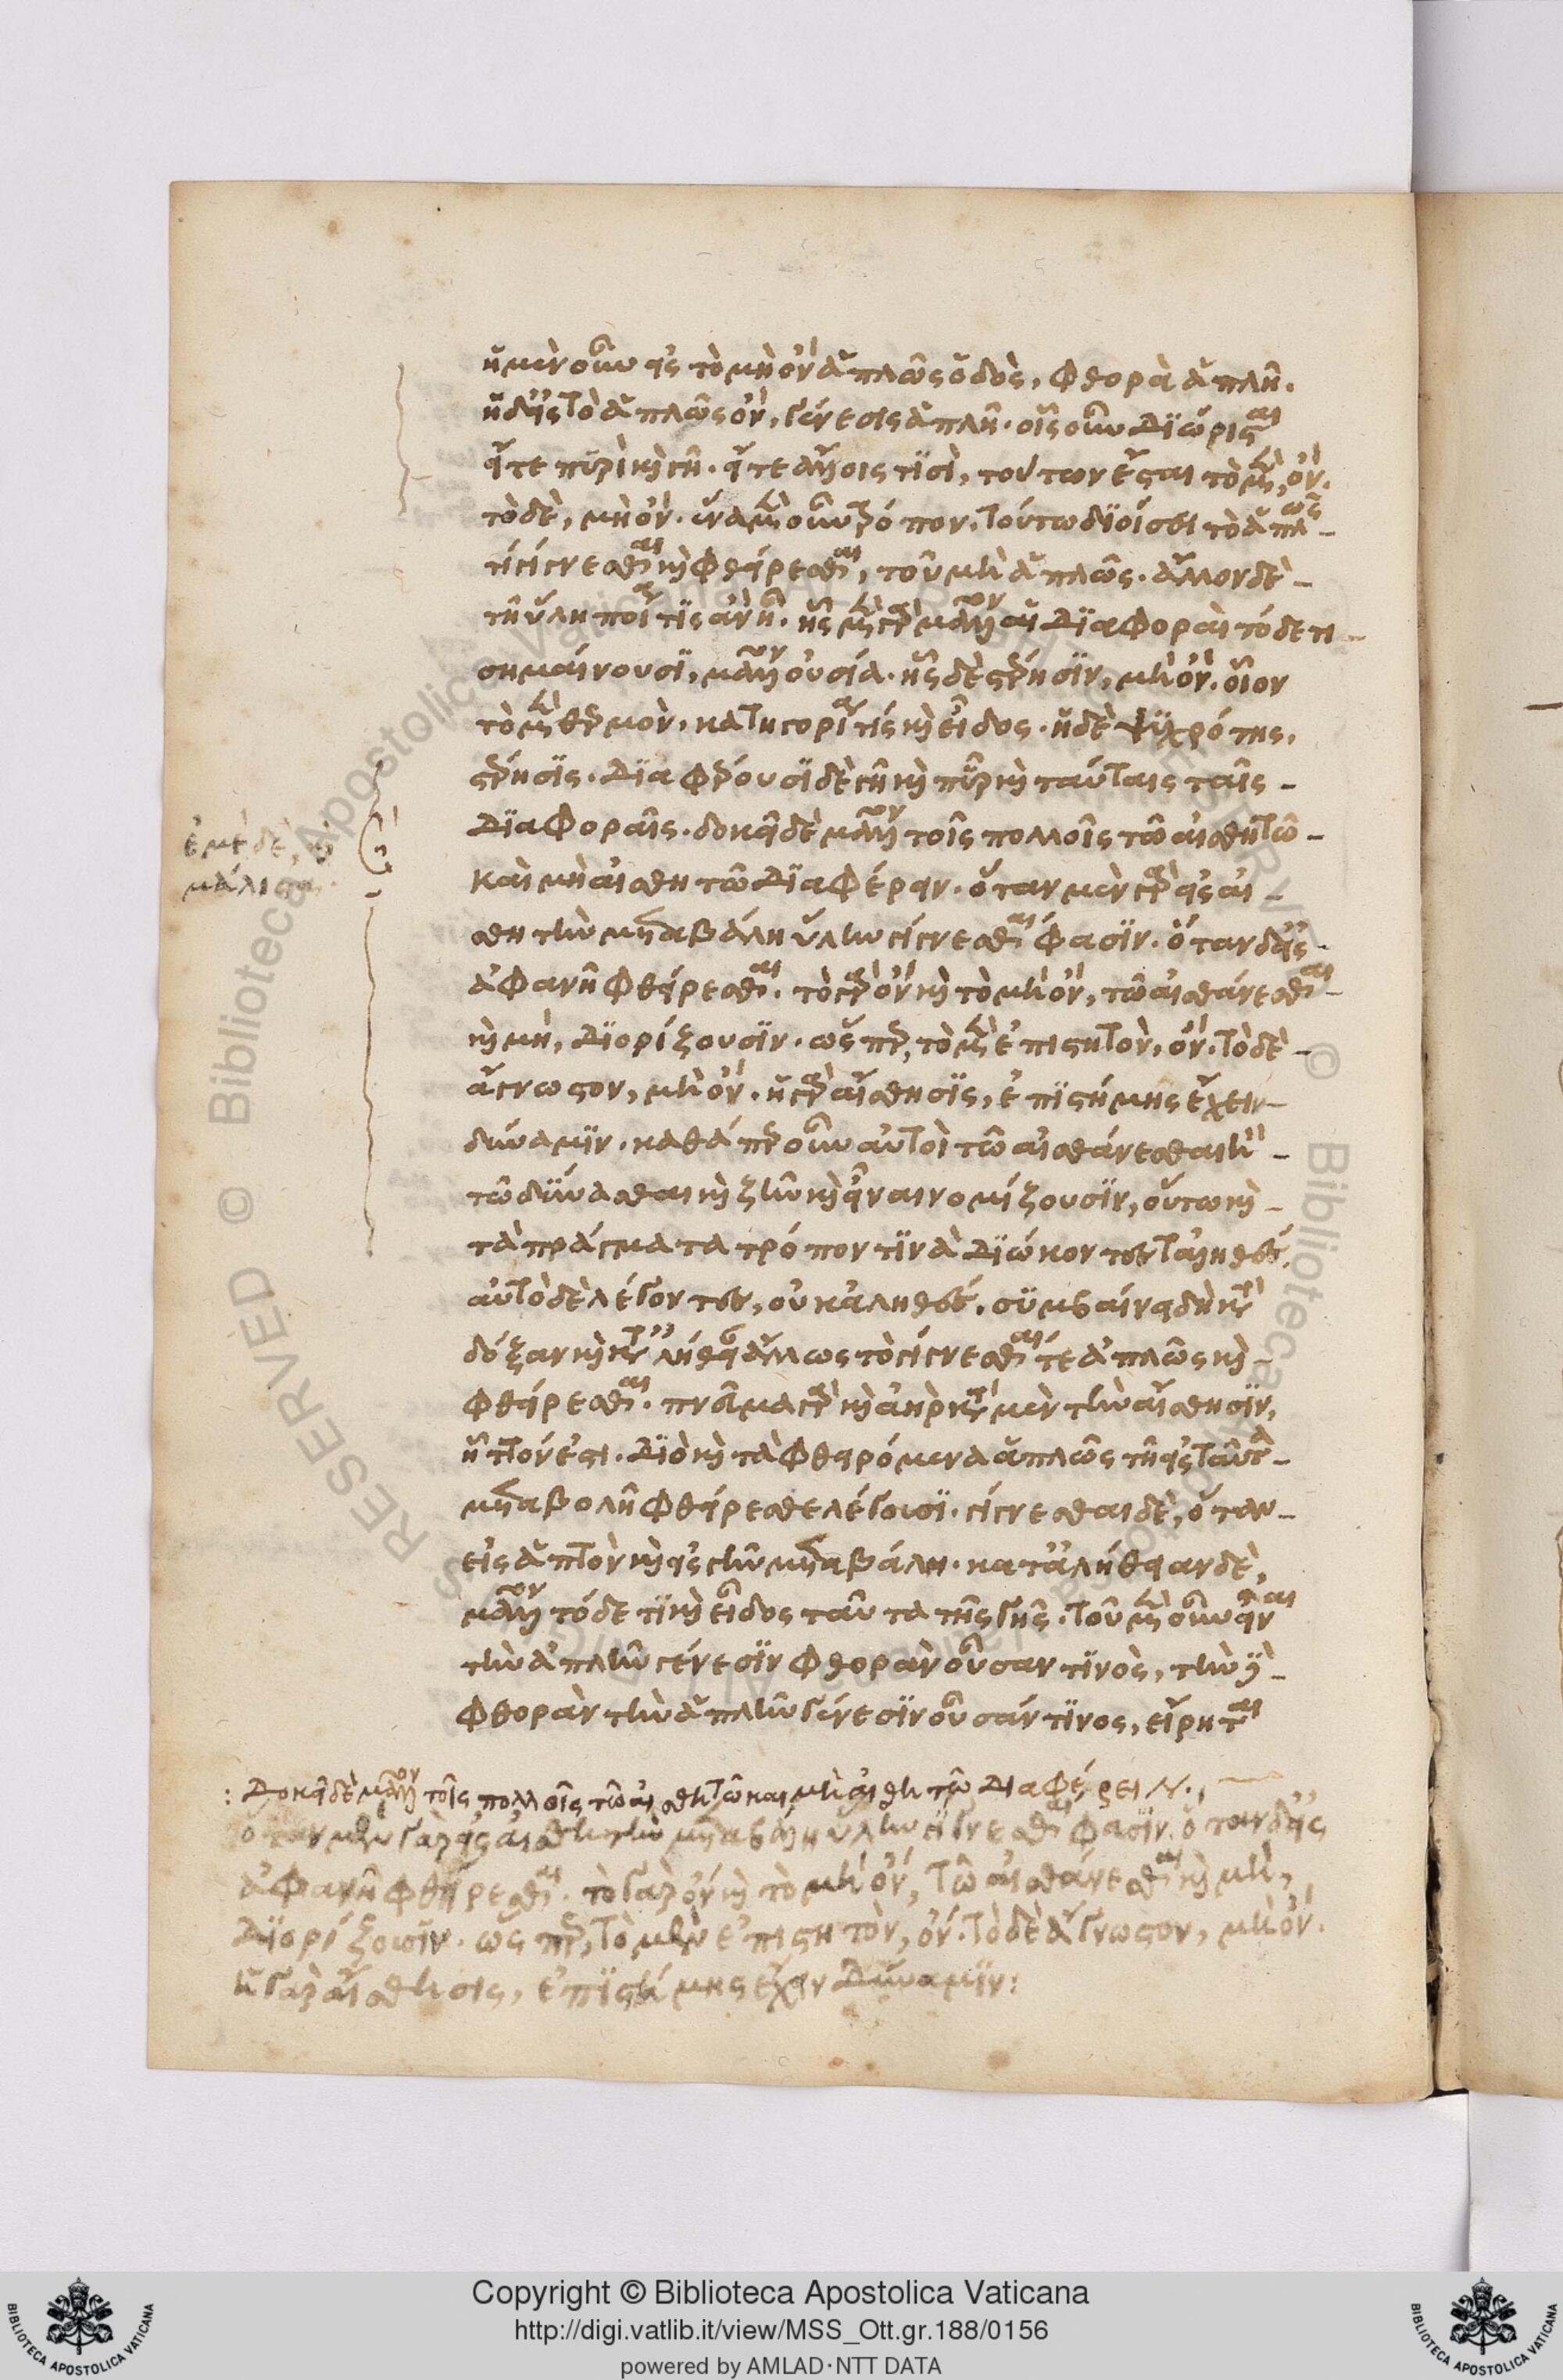 ἡ μὲν οὖν εἰς τὸ μὴ ὂν ἁπλῶς ὁδὸς, φθορὰ ἁπλῆ.
ἡ δ' εἰς τὸ ἁπλῶς ὂν, γένεσις ἁπλῆ. οἷς οὖν διώρισται
εἴτε πῦρὶ καὶ γῆ. εἴτε ἄλλοις τισὶ, τούτων ἔσται τὸ μὲν, ὂν.
τὸ δὲ, μὴ ὂν. ἕνα μὲν οὖν τρόπον, τούτω διοίσει τὸ ἁπλῶς
τὶ γίγνεσθαι καὶ φθείρεσθαι, τοῦ μὴ ἁπλῶς. ἄλλον δὲ
τῆ ὕλη ποία τις ἂν ἦ. ἧς μὲν γὰρ μᾶλλον αἱ διαφοραὶ τόδε τι
σημαίνουσι, μᾶλλον οὐσία. ἧς δὲ στέρησιν, μὴ ὂν. οἷον
τὸ μὲν θερμὸν, κατηγορία τίς καὶ εἶδος. ἡ δὲ ψυχρότης,
στέρησις. διαφέρουσι δὲ γῆ καὶ πῦρ καὶ ταύταις ταῖς
διαφοραῖς. δοκεῖ δὲ μᾶλλον τοῖς πολλοῖς τῶ αἰσθητῶ
καὶ μὴ αἰσθητῶ διαφέρειν. ὅταν μὲν γὰρ εἰς αἰ
σθητὴν μεταβάλη ὕλην γίγνεσθαι φασίν. ὅταν δ' εἰς
ἀφανῆ φθείρεσθαι. τὸ γὰρ ὂν καὶ τὸ μὴ ὂν, τῶ αἰσθάνεσθαι
καὶ μὴ, διορίζουσιν. ὥσπερ, τὸ μὲν ἐπιστητὸν, ὂν. τὸ δὲ
ἄγνωστον, μὴ ὄν. ἡ γὰρ αἴσθησις, ἐπιστήμης ἔχει
δύναμιν. καθάπερ οὖν αὐτοὶ τῶ αἰσθάνεσθαι ἢ
τῶ δύνασθαι καὶ ζῆν καὶ εἶναι νομίζουσιν, οὕτω καὶ
τὰ πράγματα τρόπον τινὰ διώκοντες τἀληθές.
αὐτὸ δὲ λέγοντες, οὐκ ἀληθές. συμβαίνει δὴ κατὰ
δόξαν καὶ κατ' ἀλήθειαν ἄλλως τὸ γίγνεσθαί τε ἁπλῶς καὶ
φθείρεσθαι. πνεῦμα γὰρ καὶ ἀὴρ κατὰ μὲν τὴν αἴσθησιν,
ἧττον ἐστι. διὸ καὶ τὰ φθειρόμενα ἁπλῶς τῆ εἰς ταῦτα
μεταβολῆ φθείρεσθε λέγουσι. γίγνεσθαι δὲ, ὅταν
εἰς ἁπτὸν καὶ εἰς γῆν μεταβάλη. κατ' ἀλήθειαν δὲ,
μᾶλλον τόδε τι καὶ εἶδος ταῦτα τῆς γῆς. τοῦ μὲν οὖν εἶναι
τὴν ἁπλῆν γένεσιν φθορὰν οὖσαν τινὸς, τὴν δὲ
φθορὰν τὴν ἁπλῆν γένεσιν οὖσάν τινος, εἴρηται
ἐμὲ δὲ,
μάλιστα
: Δοκεῖ δὲ μᾶλλον τοῖς πολλοῖς τῶ αἰσθητῶ και μὴ αἰσθητῶ διαφέρειν.
ὅταν μὲν γὰρ εἰς αἰσθητὴν μεταβάλλη ὕλην γίγνεσθαι φασίν. ὅταν δ' εἰς
ἀφανῆ φθείρεσθαι. τὸ γὰρ ὂν καὶ τὸ μὴ ὂν, τῶ αἰσθάνεσθαι καὶ μὴ,
διορίζουσιν. ὥσπερ, τὸ μὲν ἐπιστητὸν, ὂν. τὸ δὲ ἄγνωστον, μὴ ὂν.
ἡ γὰρ αἴσθησις, ἐπιστήμης ἔχει δύναμιν:
RESERVED © Biblioteca Apostolica Vaticana
© Biblioteca
BIBLIOTECA APOSTOLICA VATICANA
Copyright © Biblioteca Apostolica Vaticana
http://digi.vatlib.it/view/MSS_Ott.gr.188/0156
powered by AMLAD·NTT DATA
BIBLIOTECA APOSTOLICA VATICANA